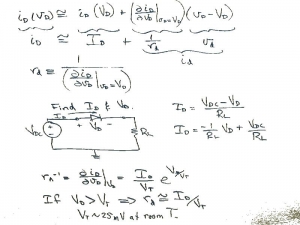 i_D(v_D) ≅ i_D(V_D) + (∂i_D/∂v_D |v_D=V_D)(v_D - V_D)
i_D ≅ I_D + 1/r_d v_d
i_d
r_d ≅ 1/(∂i_D/∂v_D |v_D=V_D)
Find I_D & V_D.
I_D = (V_DC - V_D)/R_L
I_D
V_DC + - + V_D - R_L
I_D = -1/R_L V_D + V_DC/R_L
r_d⁻¹ = ∂i_D/∂v_D |V_D = I_D/V_T e^(V_D/V_T)
If V_D > V_T ⇒ r_d ≅ I_D/V_T
V_T ~ 25mV at room T.